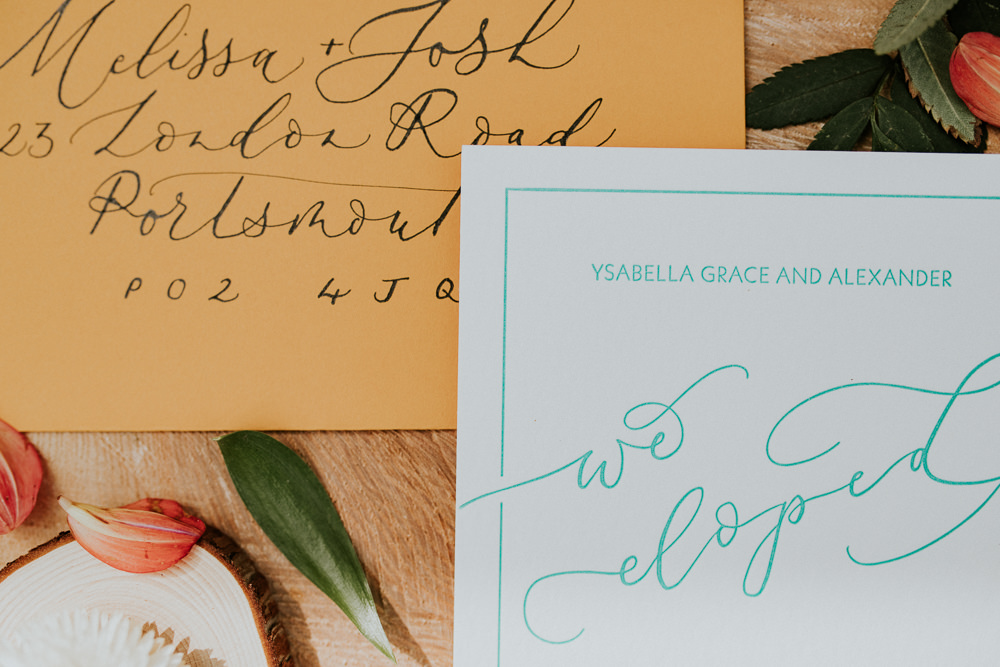 Melissa + Josh
23 London Road
Portsmout
PO2 4JQ
YSABELLA GRACE AND ALEXANDER
we
eloped